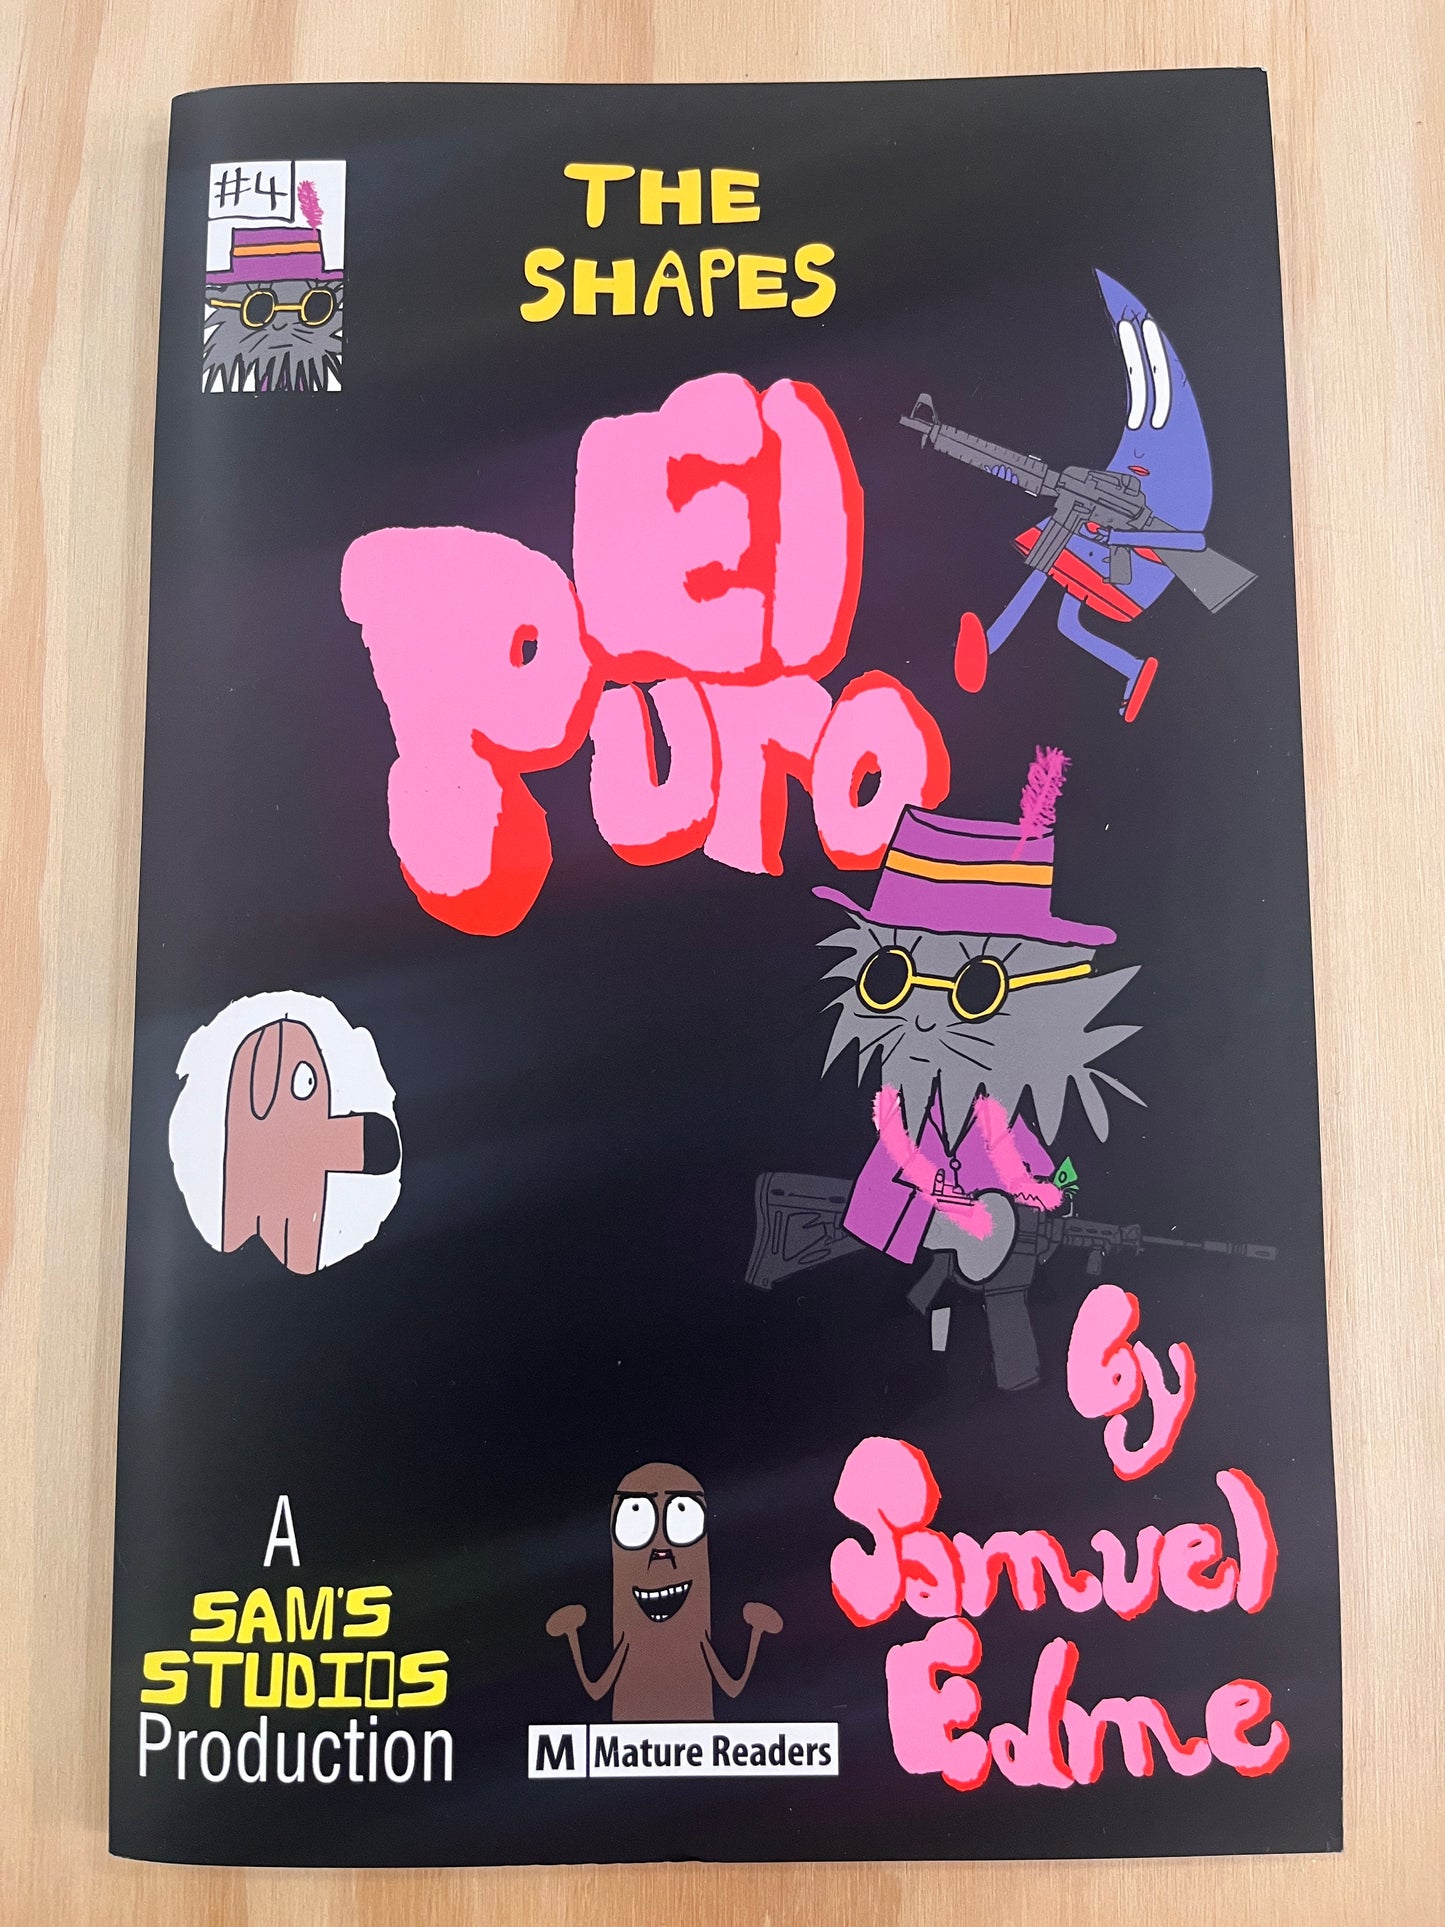 #4
THE
SHAPES
El
Puro
by
Samuel
Edme
A
SAM'S
STUDIOS
Production
M Mature Readers